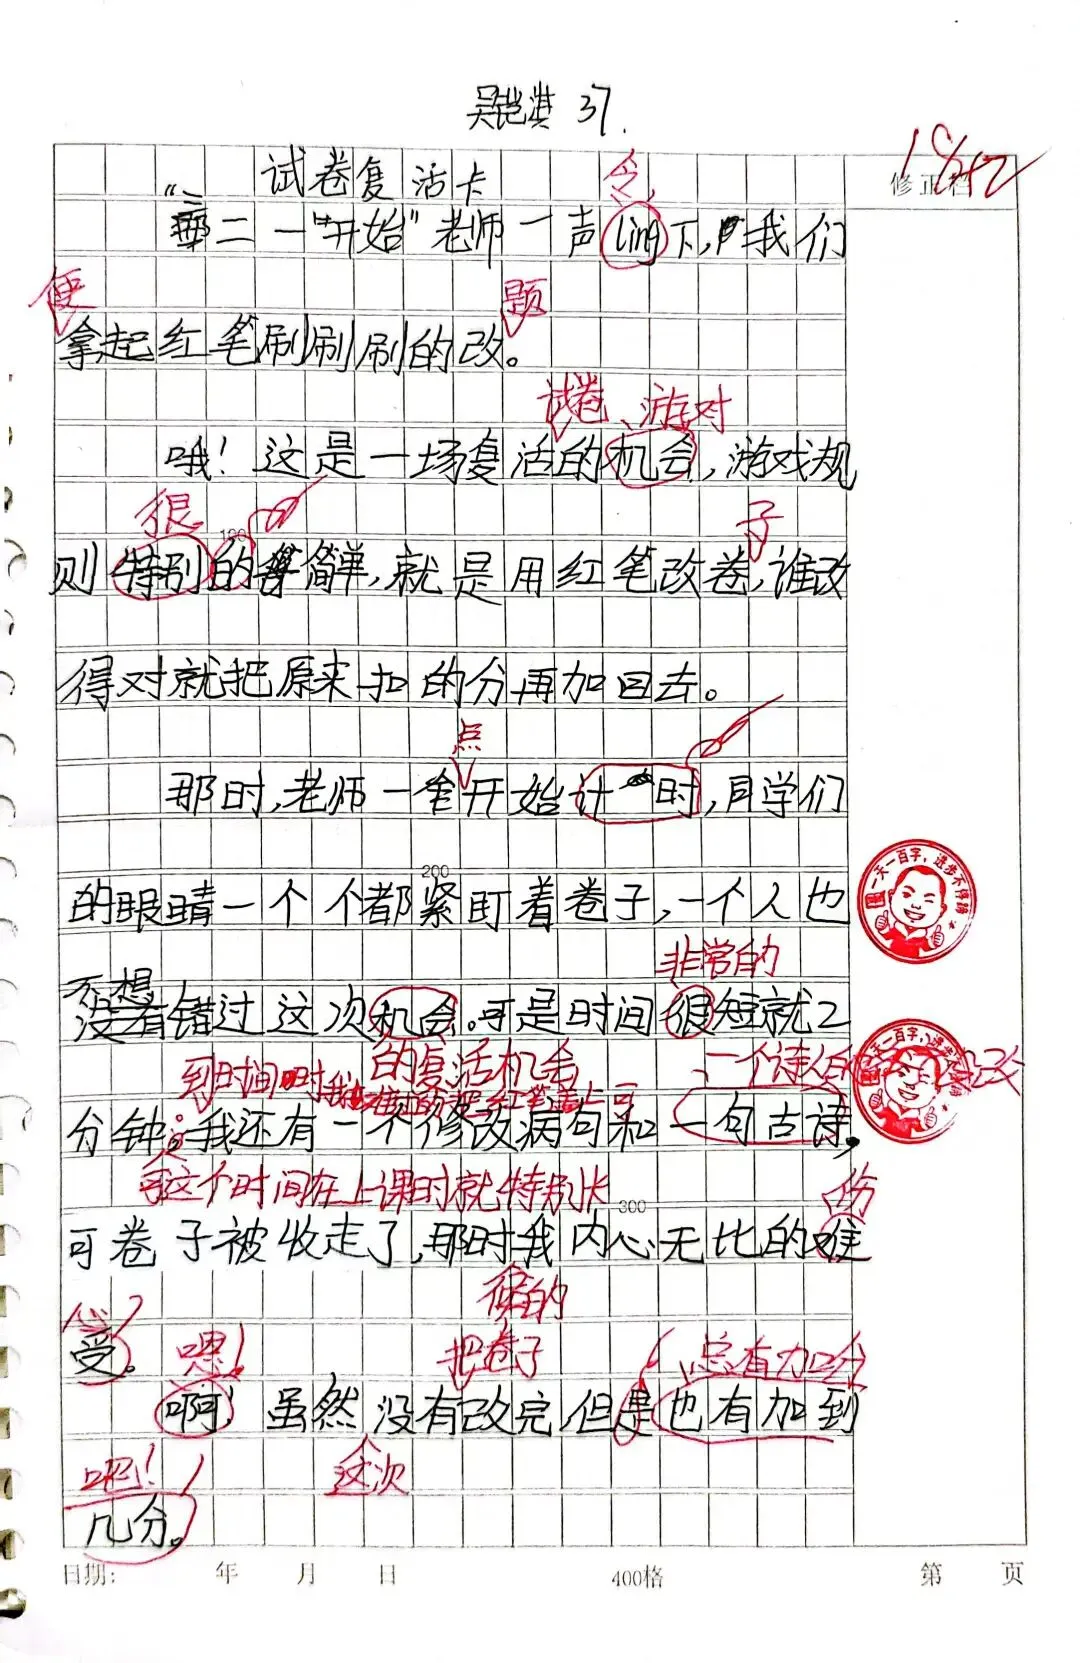 吴铠洪 37.
试卷复活卡
令
修正栏
"三二一开始"老师一声ling下,我们
便 题
拿起红笔刷刷刷的改。
试卷 游对
哦!这是一场复活的机会,游戏规
很 子
100
则特别的简单,就是用红笔改卷,谁改
得对就把原来扣的分再加回去。
点
那时,老师一 开始计时,同学们
200
的眼睛一个个都紧盯着卷子,一个人也
非常的
不想
没有错过这次机会。可是时间很短就2
的复活机会 一个诗人
到时间时我
分钟 我还有一个修改病句和一句古诗,
这个时间在上课时就特别长
300 份
可卷子被收走了,那时我内心无比的难
心
受。嗯! 把卷子 总有加分
啊!虽然没有改完,但是也有加到
吧! 这次
几分。
日期: 年 月 日 400格 第 页
一天一百字,进步不停蹄